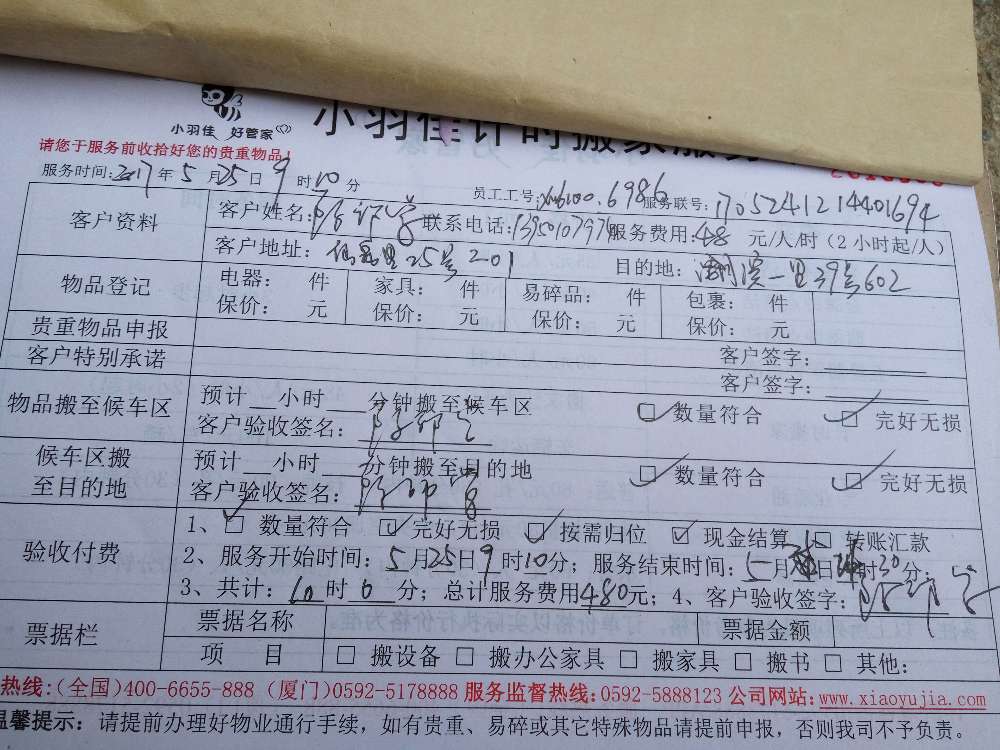 小羽佳 好管家
小羽佳计时搬家服务
请您于服务前收拾好您的贵重物品!
服务时间:2017年5月25日9时10分 员工工号: 6986 服务联号:1705241214401694
客户资料 客户姓名: 联系电话: 服务费用:48元/人/时(2小时起/人)
客户地址: 25号201 目的地: 一里39号602
物品登记 电器: 件 家具: 件 易碎品: 件 包裹: 件
保价: 元 保价: 元 保价: 元 保价: 元
贵重物品申报 客户签字:
客户特别承诺 客户签字:
物品搬至候车区 预计__小时___分钟搬至候车区 ☑数量符合 ☑完好无损
客户验收签名:
候车区搬至目的地 预计__小时___分钟搬至目的地 ☑数量符合 ☑完好无损
客户验收签名:
验收付费 1、☑数量符合 ☑完好无损 ☑按需归位 ☑现金结算 □转账汇款
2、服务开始时间:5月25日9时10分;服务结束时间:5月 日 时 分;
3、共计:10时0分;总计服务费用480元;4、客户验收签字:
票据栏 票据名称 票据金额
项目 □搬设备 □搬办公家具 □搬家具 □搬书 □其他:
热线:(全国)400-6655-888 (厦门)0592-5178888 服务监督热线:0592-5888123 公司网站:www.xiaoyujia.com
温馨提示: 请提前办理好物业通行手续,如有贵重、易碎或其它特殊物品请提前申报,否则我司不予负责。